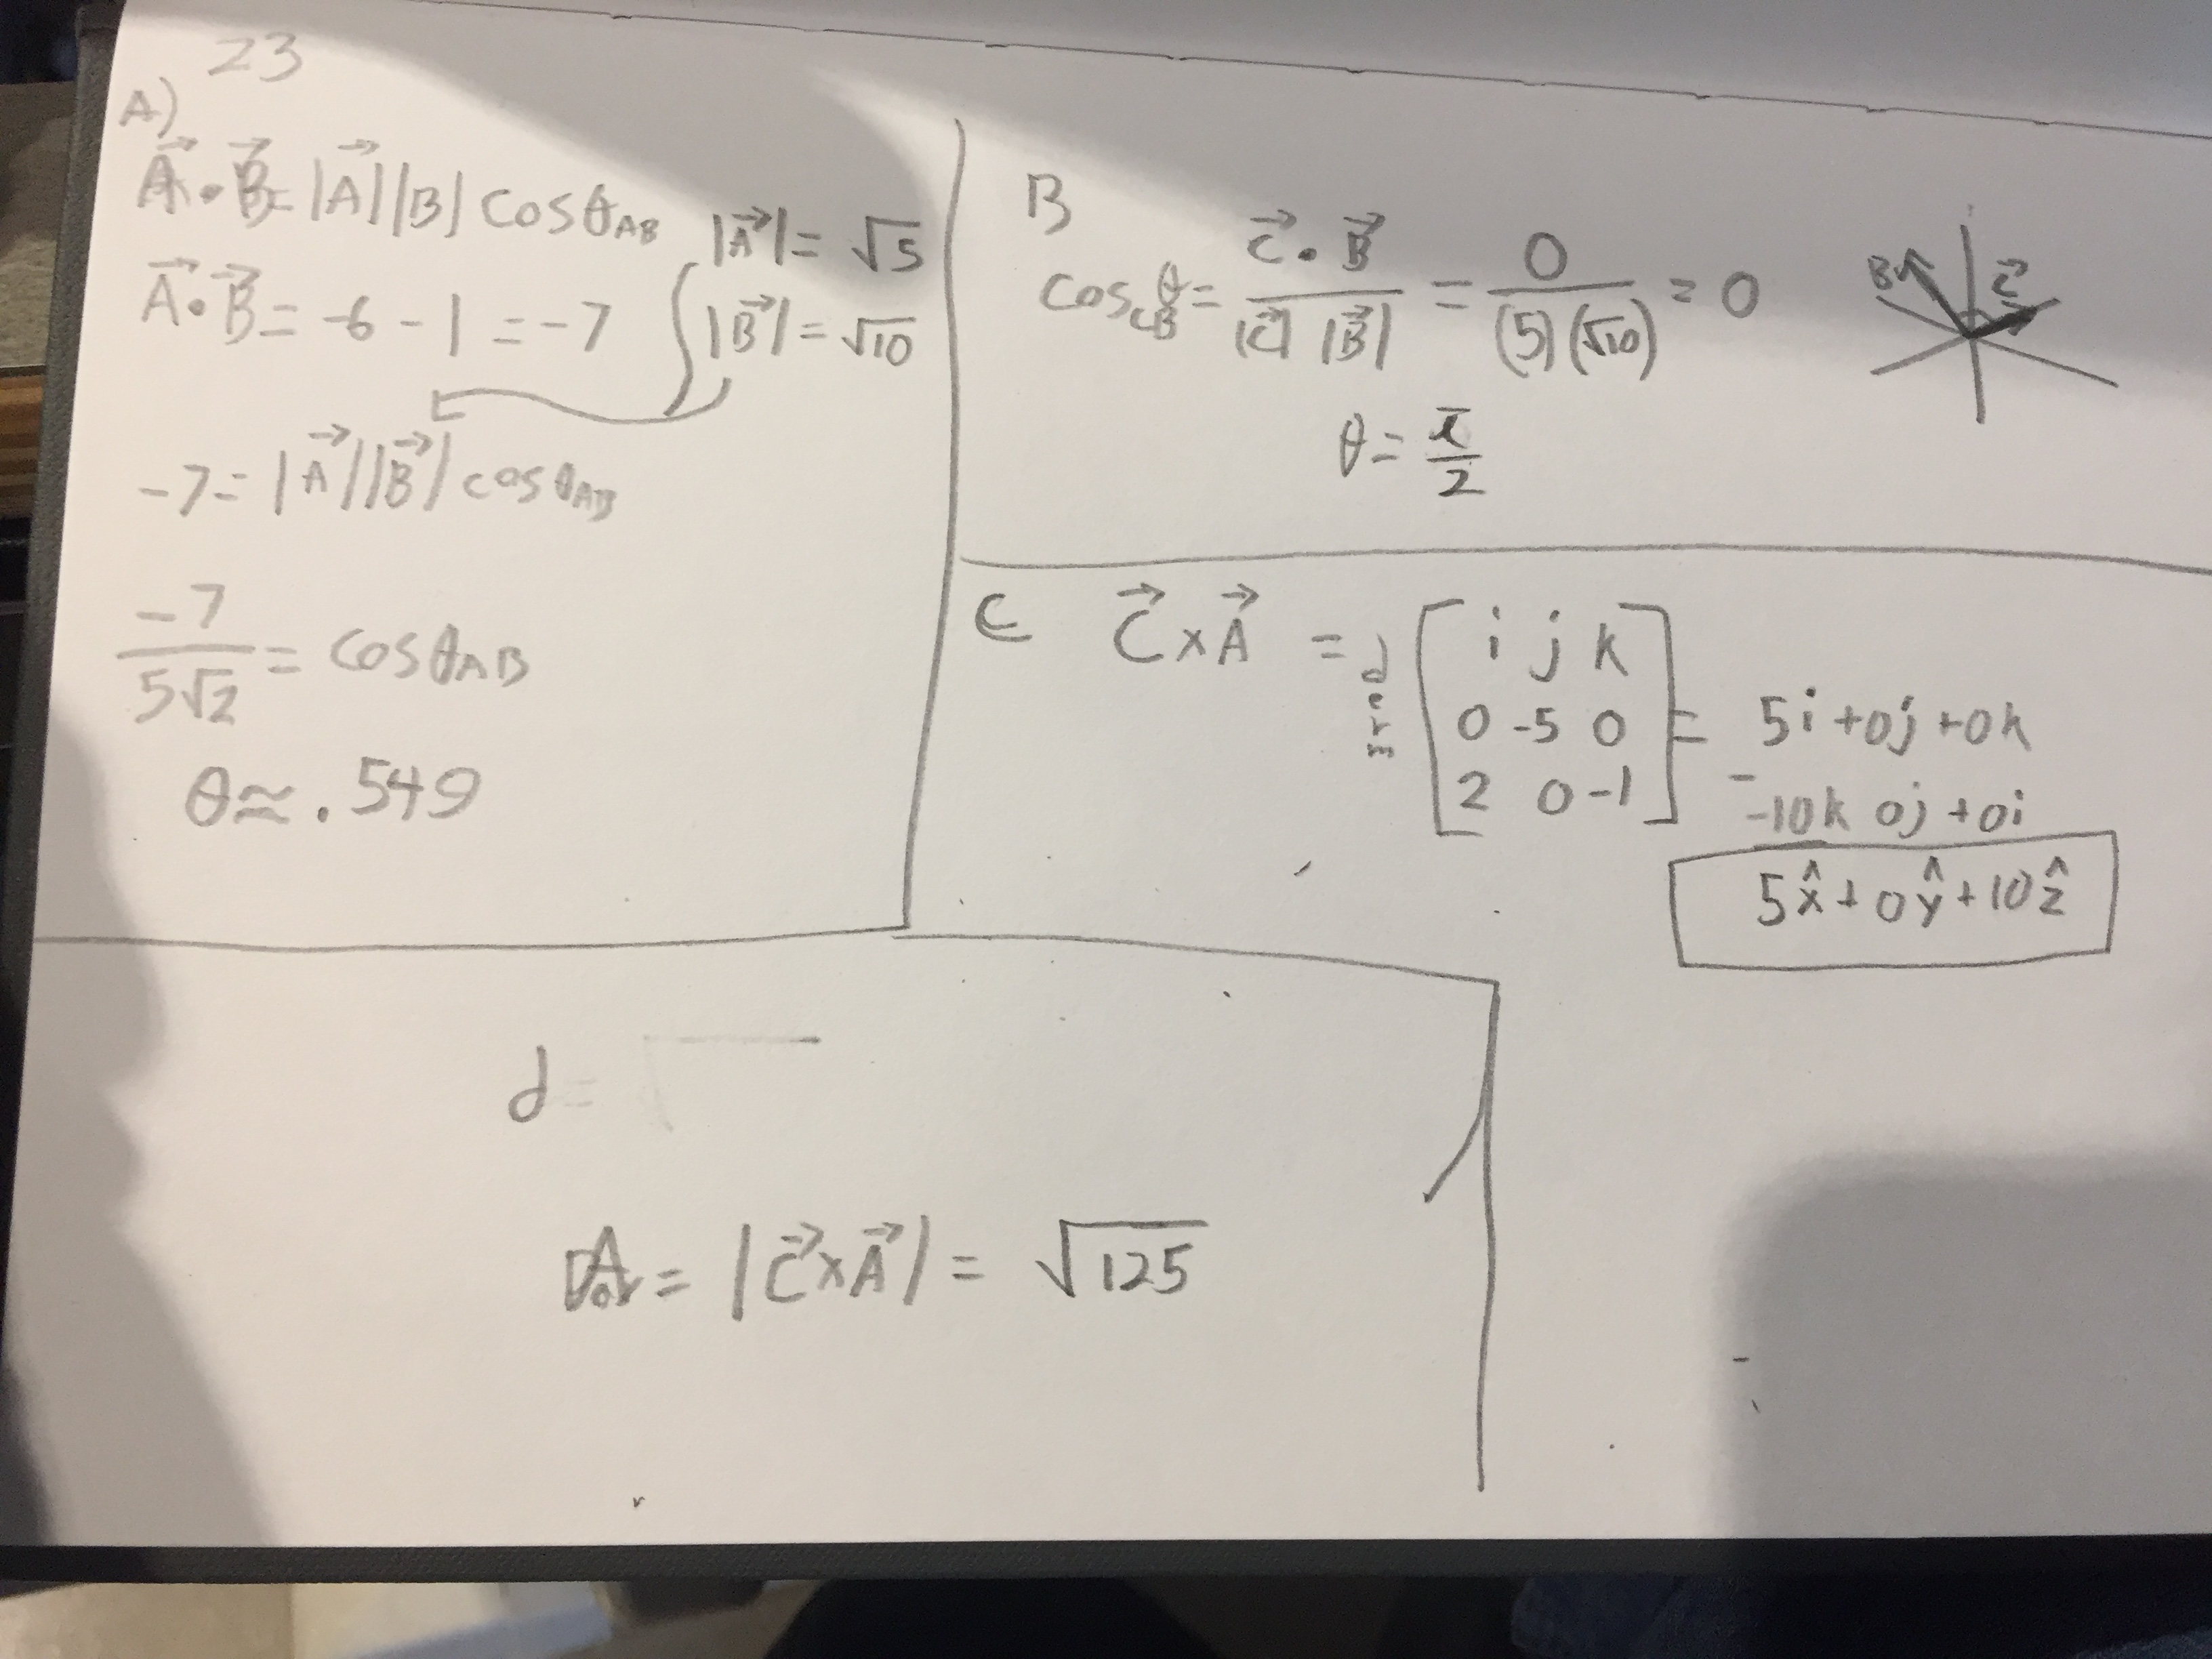 23
A)
A⃗ • B⃗ = |A⃗||B| cosθ_AB
|A⃗| = √5
|B⃗| = √10
A⃗ • B⃗ = -6 - 1 = -7
-7 = |A⃗||B⃗| cosθ_AB
-7/(5√2) = cosθ_AB
θ ≈ .549
B
cosθ_CB = (C⃗ • B⃗)/(|C⃗| |B⃗|) = 0/((5)(√10)) = 0
θ = π/2
B
C⃗
C C⃗ x A⃗ = det [i j k
0 -5 0
2 0 -1] = 5i + 0j + 0k
- -10k 0j + 0i
5x̂ + 0ŷ + 10ẑ
d =
= |C⃗ x A⃗| = √125